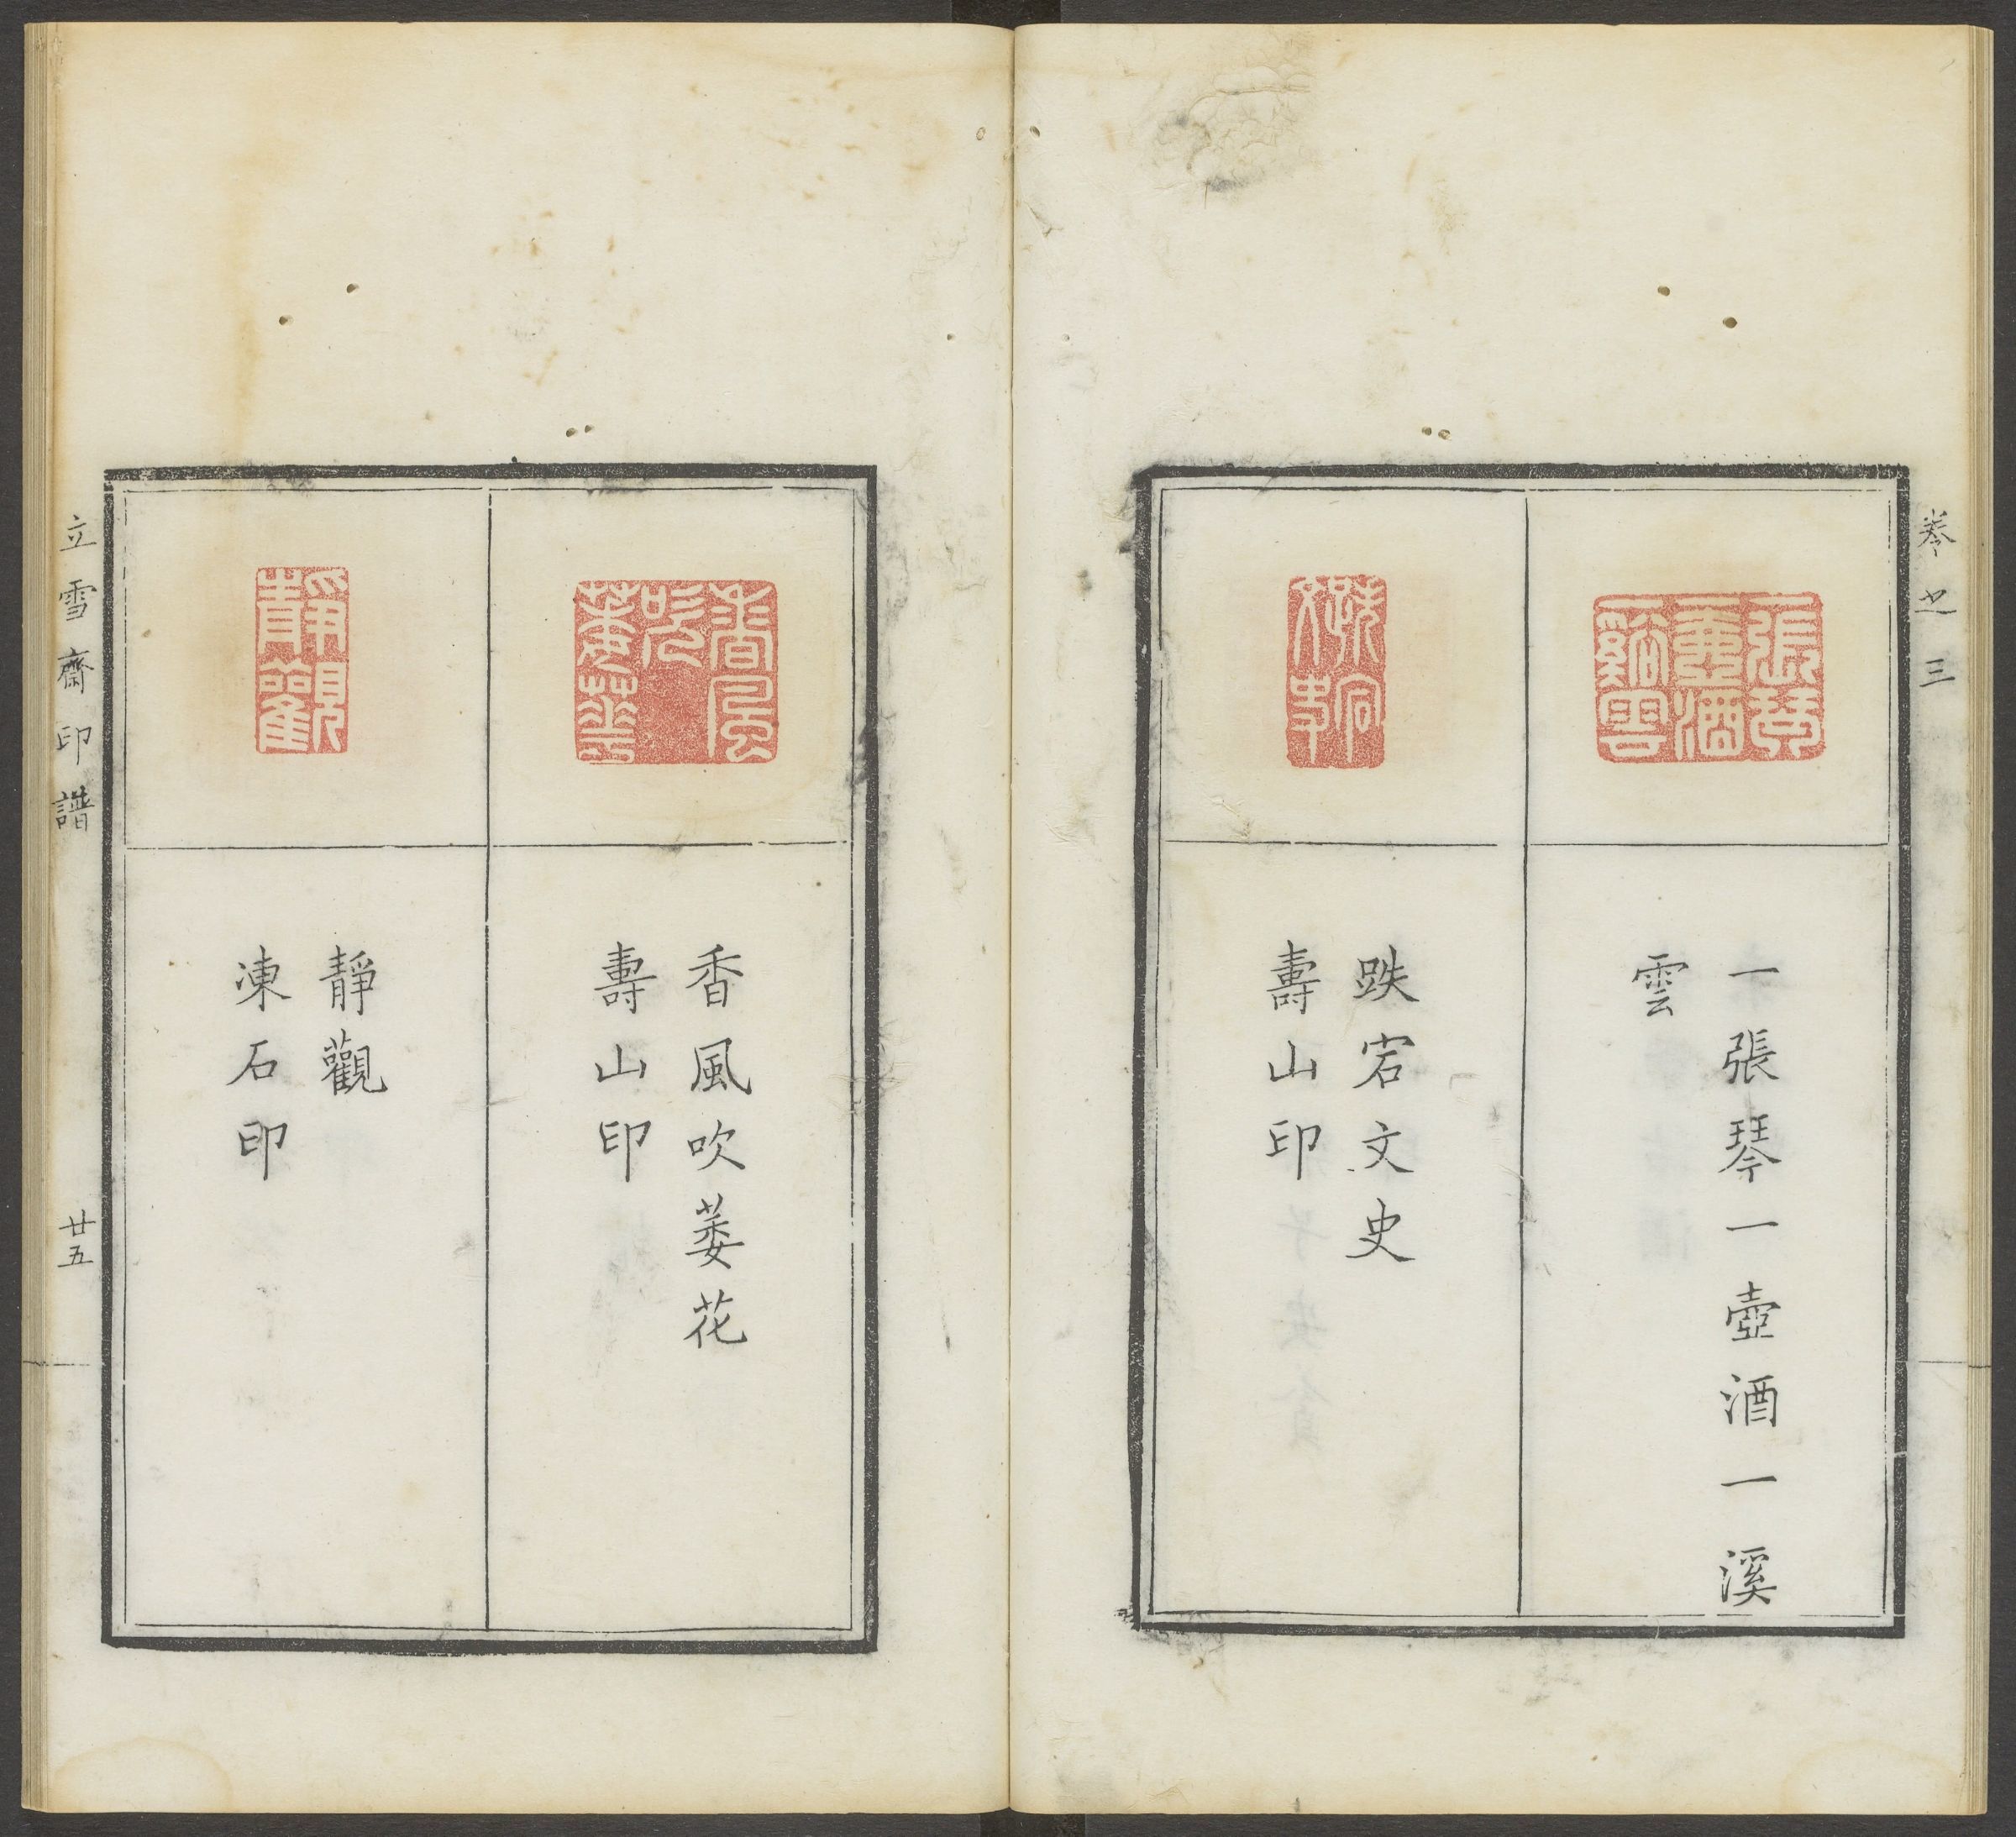 卷之三
一張琴一壺酒一溪
雲
跌宕文史
壽山印
香風吹蔞花
壽山印
靜觀
凍石印
立雪齋印譜
廿五